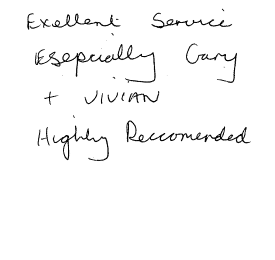 Exellent Service
Esepcially Gary
+ VIVIAN
Highly Reccomended